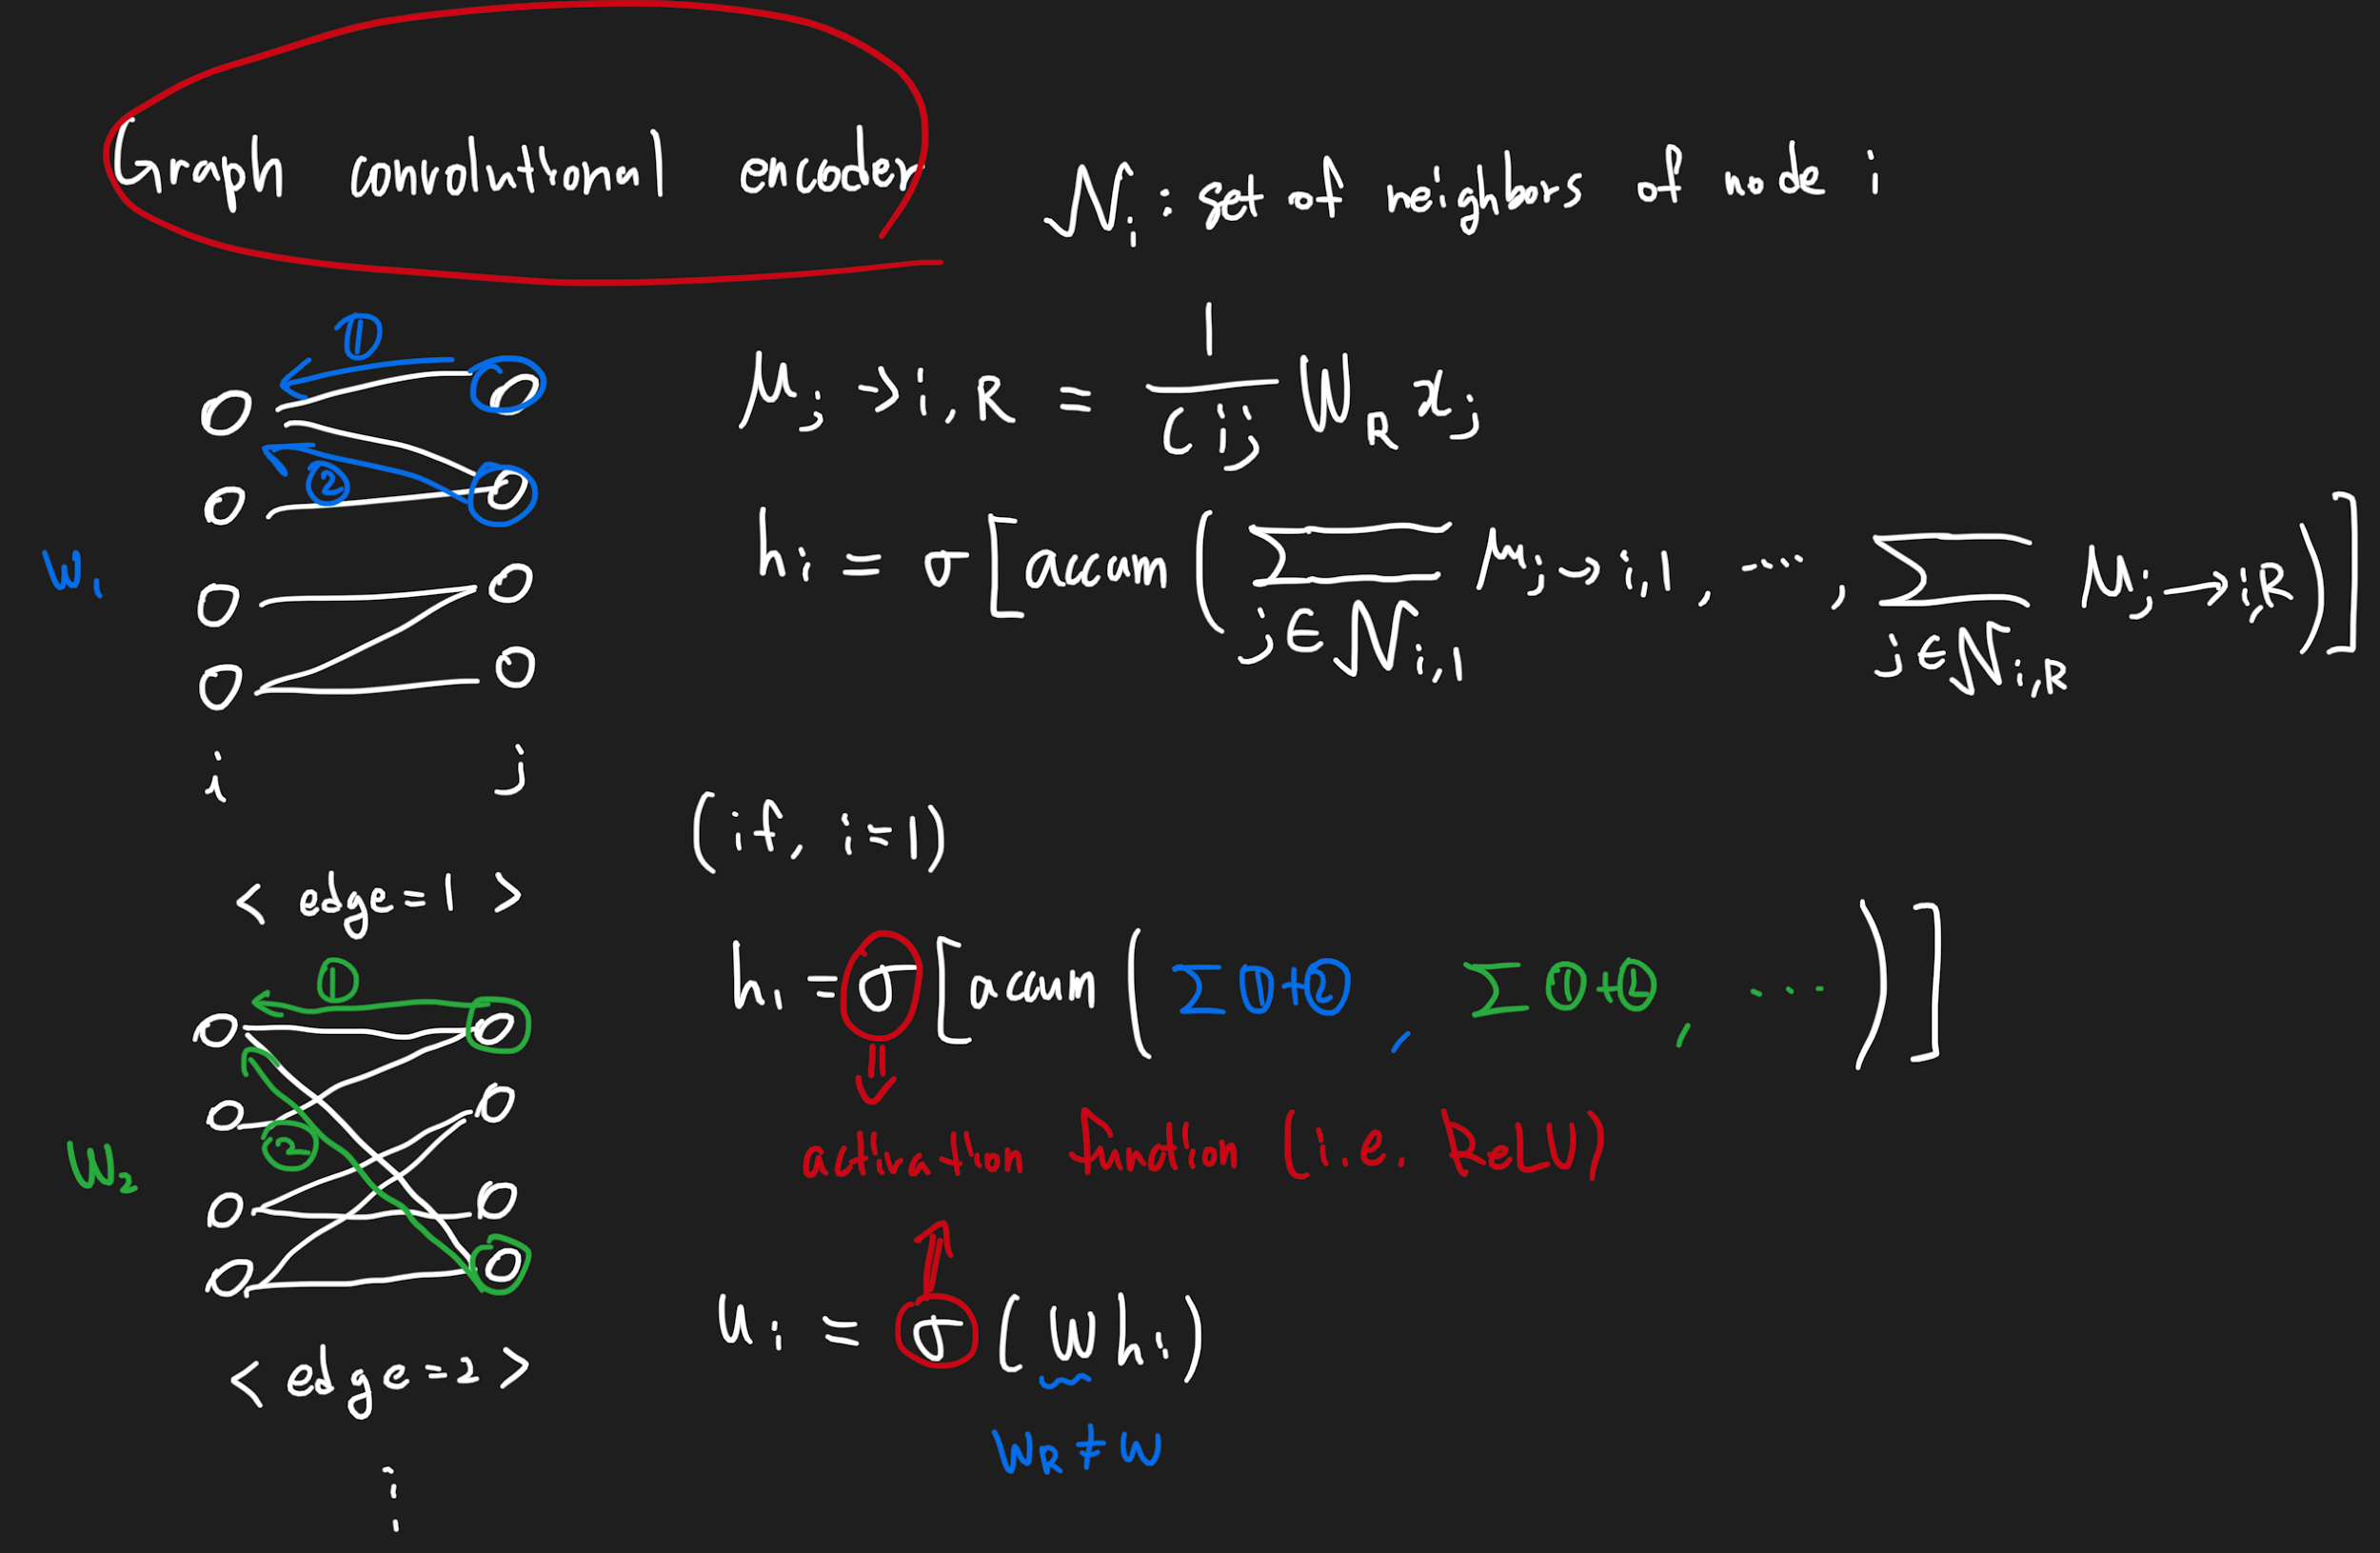 Graph convolutional encoder
𝒩ᵢ : set of neighbors of node i
① 
②
W₁
i j
< edge=1 >
μ j → i, R = 1 / Cij W_R xj
hi = σ [ accum ( Σ j∈𝒩i,1 μ j→i,1 , ... , Σ j∈𝒩i,R μ j→i,R ) ]
(if, i=1)
h₁ = σ [ accum ( Σ ①+② , Σ ①+② , ... ) ]
activation function (i.e. ReLU)
①
②
W₂
< edge=2 >
ui = σ (W hi)
W_R ≠ W